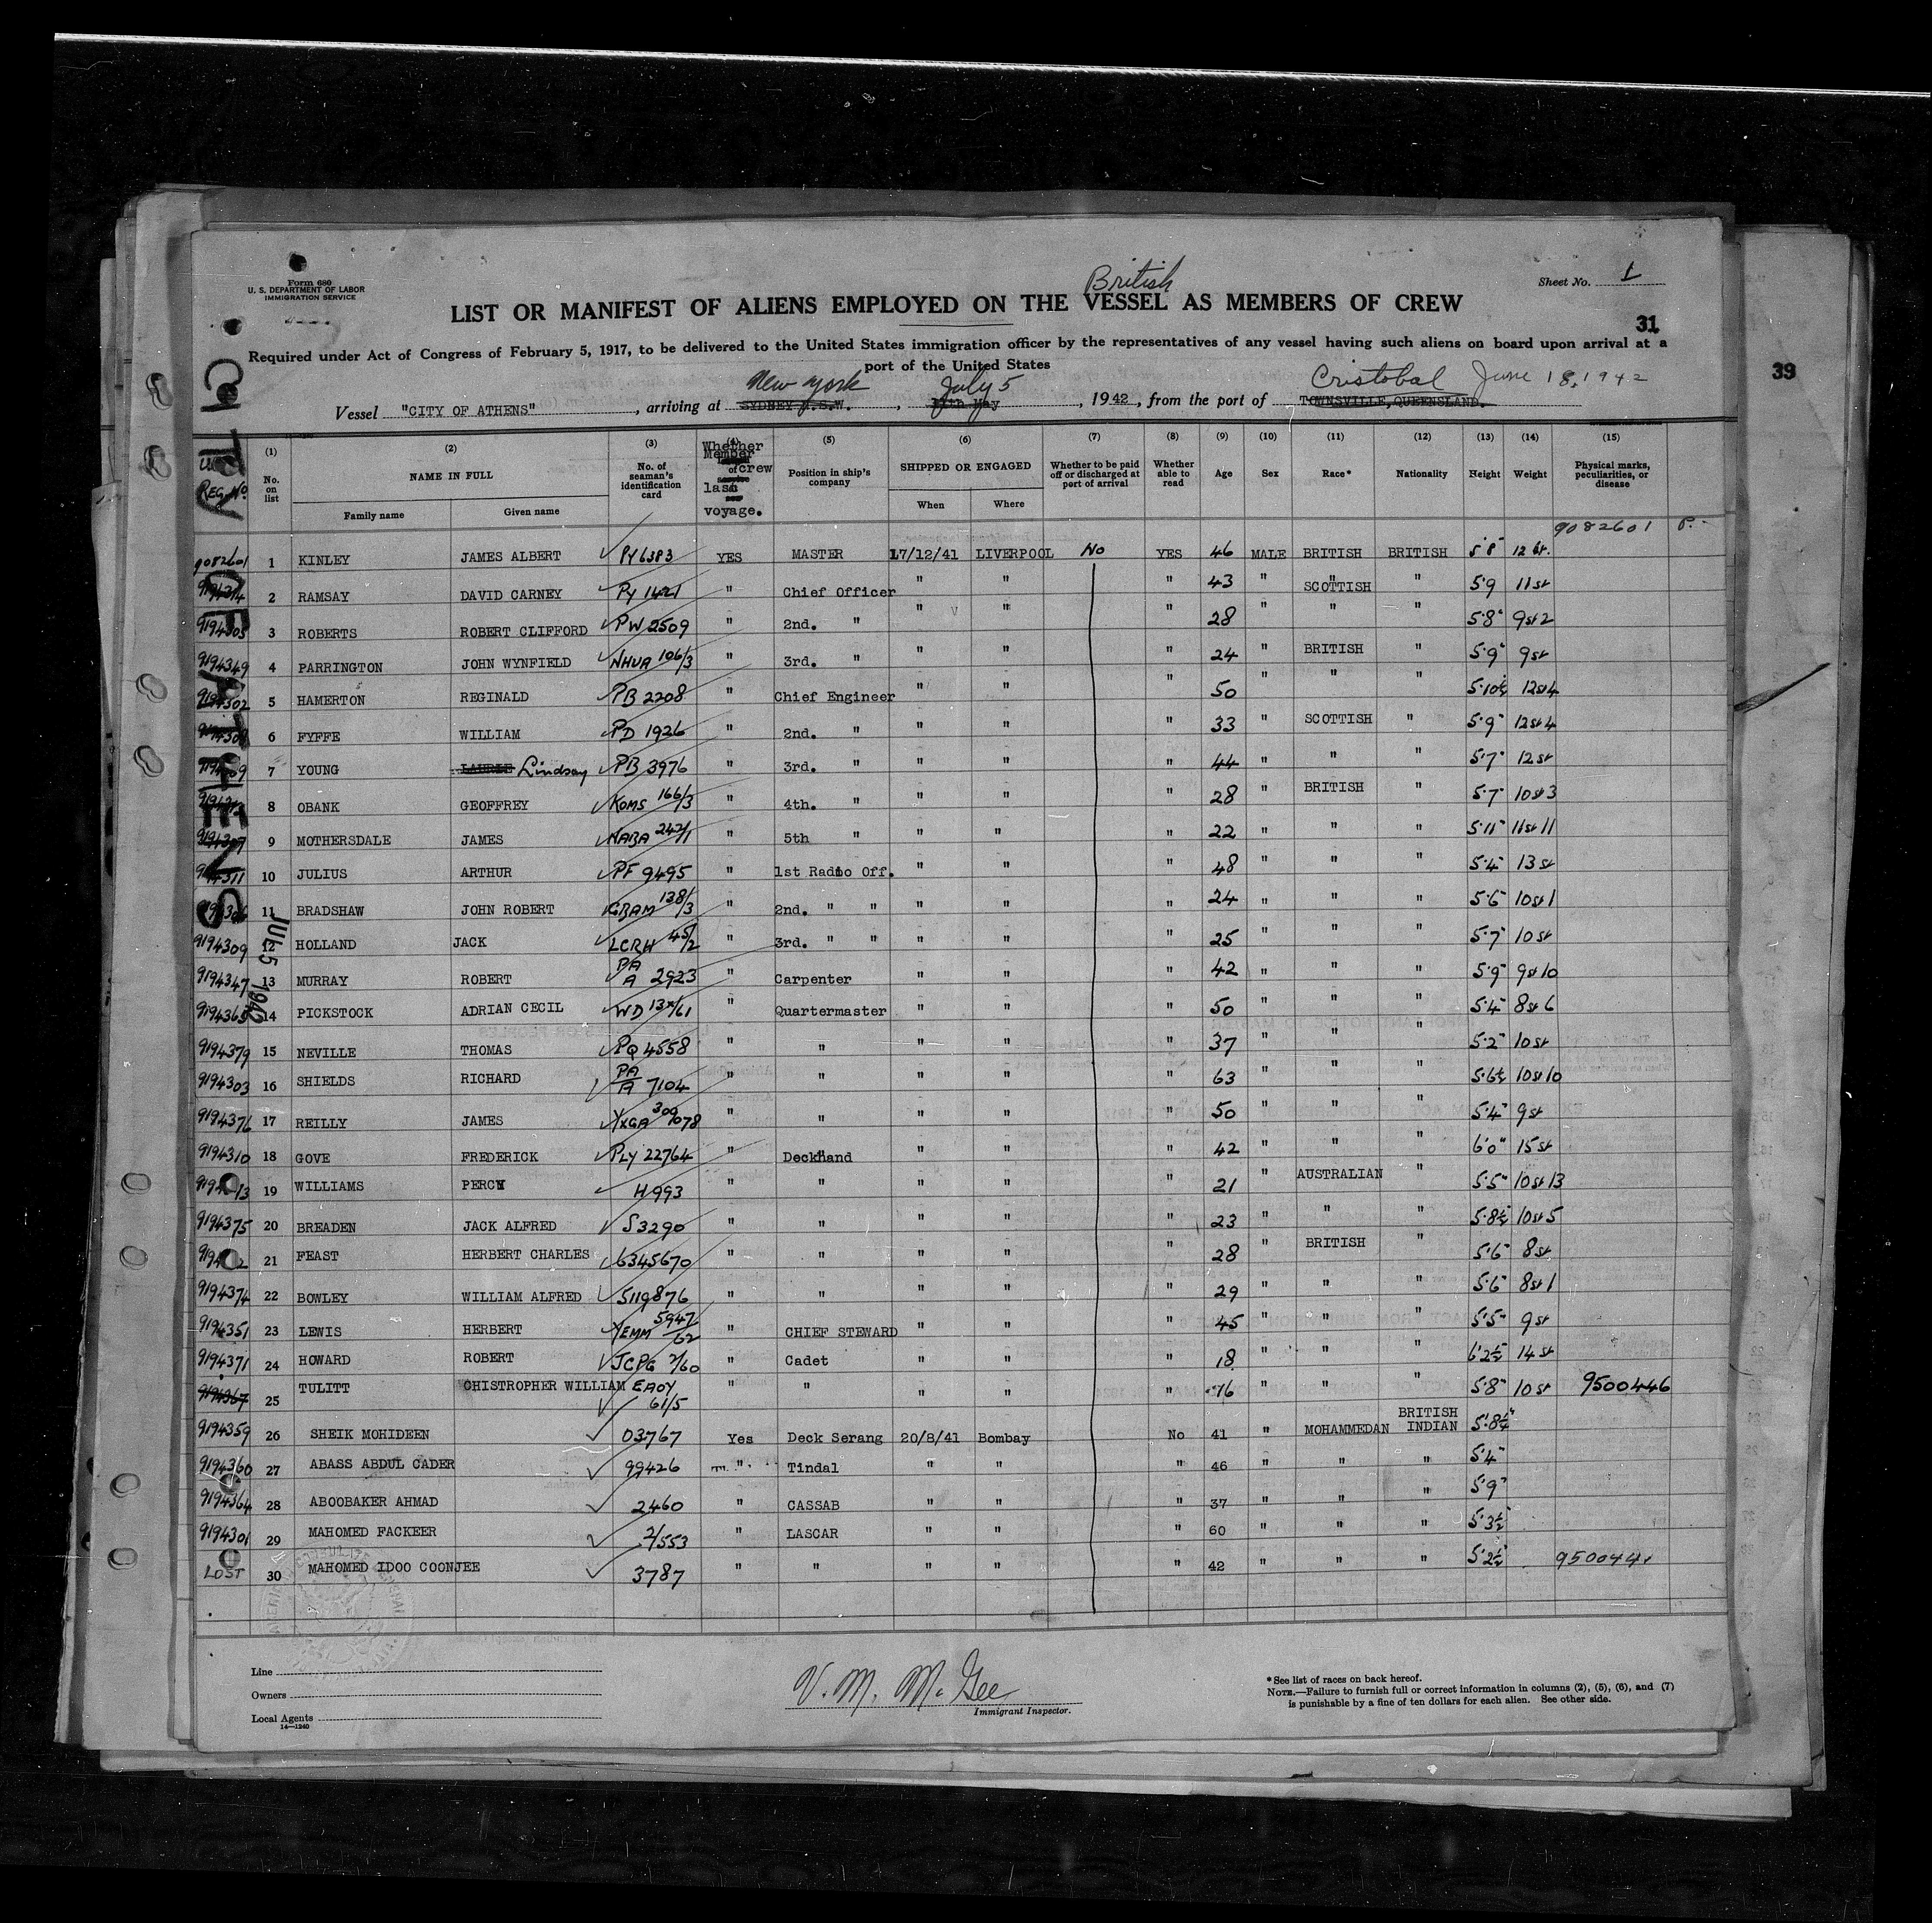 Form 680
U. S. DEPARTMENT OF LABOR
IMMIGRATION SERVICE
Sheet No. 1
British
LIST OR MANIFEST OF ALIENS EMPLOYED ON THE VESSEL AS MEMBERS OF CREW
31
39
Required under Act of Congress of February 5, 1917, to be delivered to the United States immigration officer by the representatives of any vessel having such aliens on board upon arrival at a
port of the United States
New York July 5 Cristobal June 18, 1942
Vessel "CITY OF ATHENS", arriving at SYDNEY N.S.W., May, 1942, from the port of TOWNSVILLE, QUEENSLAND.
REG. No.
(1) No. on list
(2) NAME IN FULL
Family name Given name
(3) No. of seaman's identification card
(4) Whether Member of crew last voyage.
(5) Position in ship's company
(6) SHIPPED OR ENGAGED
When Where
(7) Whether to be paid off or discharged at port of arrival
(8) Whether able to read
(9) Age
(10) Sex
(11) Race*
(12) Nationality
(13) Height
(14) Weight
(15) Physical marks, peculiarities, or disease
9082601 P.
9082601 1 KINLEY JAMES ALBERT PY6383 YES MASTER 17/12/41 LIVERPOOL No YES 46 MALE BRITISH BRITISH 5'8" 12 st.
2 RAMSAY DAVID CARNEY PY 1421 " Chief Officer " " " 43 " SCOTTISH " 5'9 11st
9194305 3 ROBERTS ROBERT CLIFFORD PW 2509 " 2nd. " " " " 28 " " " 5'8" 9st2
9194349 4 PARRINGTON JOHN WYNFIELD NHUA 106/3 " 3rd. " " " " 24 " BRITISH " 5'9" 9st
9194302 5 HAMERTON REGINALD PB 2208 " Chief Engineer " " " 50 " " " 5'10½ 12st4
6 FYFFE WILLIAM PD 1926 " 2nd. " " " " 33 " SCOTTISH " 5'9" 12st4
7 YOUNG LAURIE Lindsay PB 3976 " 3rd. " " " " 44 " " " 5'7" 12st
8 OBANK GEOFFREY KOMS 166/3 " 4th. " " " " 28 " BRITISH " 5'7" 10st3
9 MOTHERSDALE JAMES NABA 242/1 " 5th " " " " 22 " " " 5'11" 11st11
10 JULIUS ARTHUR PF 9495 " 1st Radio Off. " " " 48 " " " 5'4" 13st
11 BRADSHAW JOHN ROBERT GBAM 138/3 " 2nd. " " " " " 24 " " " 5'6" 10st1
9194309 12 HOLLAND JACK LCRH 45/2 " 3rd. " " " " " 25 " " " 5'7" 10st
9194347 13 MURRAY ROBERT PA/A 2923 " Carpenter " " " 42 " " " 5'9" 9st10
9194365 14 PICKSTOCK ADRIAN CECIL " Quartermaster " " " 50 " " " 5'4" 8st6
9194379 15 NEVILLE THOMAS PQ 4558 " " " " " 37 " " " 5'2" 10st
9194303 16 SHIELDS RICHARD PA/A 7104 " " " " " 63 " " " 5'6½ 10st10
9194376 17 REILLY JAMES " " " " " 50 " " " 5'4" 9st
9194310 18 GOVE FREDERICK PLY 22764 " Deckhand " " " 42 " " " 6'0" 15st
19 WILLIAMS PERCY H993 " " " " " 21 " AUSTRALIAN " 5'5" 10st13
9194375 20 BREADEN JACK ALFRED S3290 " " " " " 23 " " " 5'8½ 10st5
21 FEAST HERBERT CHARLES 6345670 " " " " " 28 " BRITISH " 5'6" 8st
9194374 22 BOWLEY WILLIAM ALFRED 5119876 " " " " " 29 " " " 5'6" 8st1
9194351 23 LEWIS HERBERT YEMM 5947/62 " CHIEF STEWARD " " " 45 " " " 5'5" 9st
9194371 24 HOWARD ROBERT JCPG 2/60 " Cadet " " " 18 " " " 6'2½ 14st
9194367 25 TULITT CHISTROPHER WILLIAM EAOY 61/5 " " " " " 16 " " " 5'8" 10st 9500446
9194359 26 SHEIK MOHIDEEN 03767 Yes Deck Serang 20/8/41 Bombay No 41 " MOHAMMEDAN BRITISH INDIAN 5'8¼"
9194360 27 ABASS ABDUL CADER 99426 " Tindal " " " 46 " " " 5'4"
9194364 28 ABOOBAKER AHMAD 2460 " CASSAB " " " 37 " " " 5'9"
9194301 29 MAHOMED FACKEER " LASCAR " " " 60 " " " 5'3½
LOST 30 MAHOMED IDOO COONJEE 3787 " " " " " 42 " " " 5'2½
JUL 5 1942
Line
Owners
Local Agents
14—1240
V. M. McGee
Immigrant Inspector.
*See list of races on back hereof.
NOTE.—Failure to furnish full or correct information in columns (2), (5), (6), and (7)
is punishable by a fine of ten dollars for each alien. See other side.